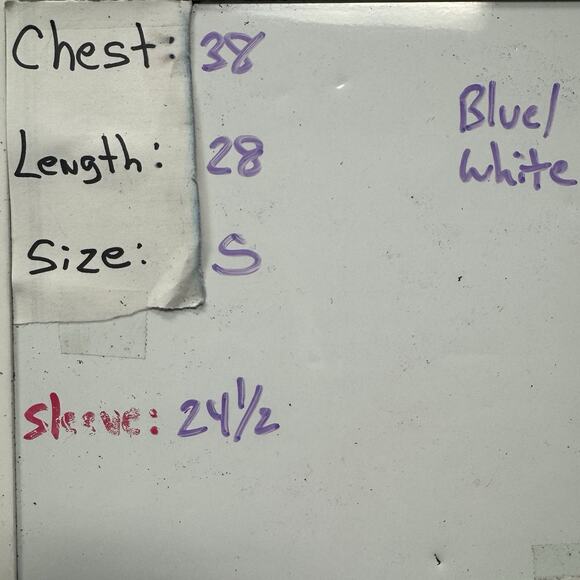 Chest: 38
Blue/
white
Length: 28
Size: S
Sleeve: 24 1/2